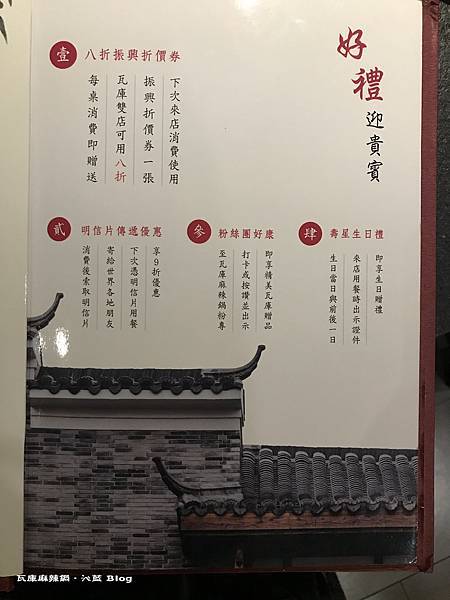 好禮
迎貴賓
壹 八折振興折價券
每桌消費即贈送
瓦庫雙店可用八折
振興折價券一張
下次來店消費使用
貳 明信片傳遞優惠
消費後索取明信片
寄給世界各地朋友
下次憑明信片用餐
享9折優惠
參 粉絲團好康
至瓦庫麻辣鍋粉專
打卡或按讚並出示
即享精美瓦庫贈品
肆 壽星生日禮
生日當日與前後一日
來店用餐時出示證件
即享生日贈禮
瓦庫麻辣鍋·沁藍 Blog